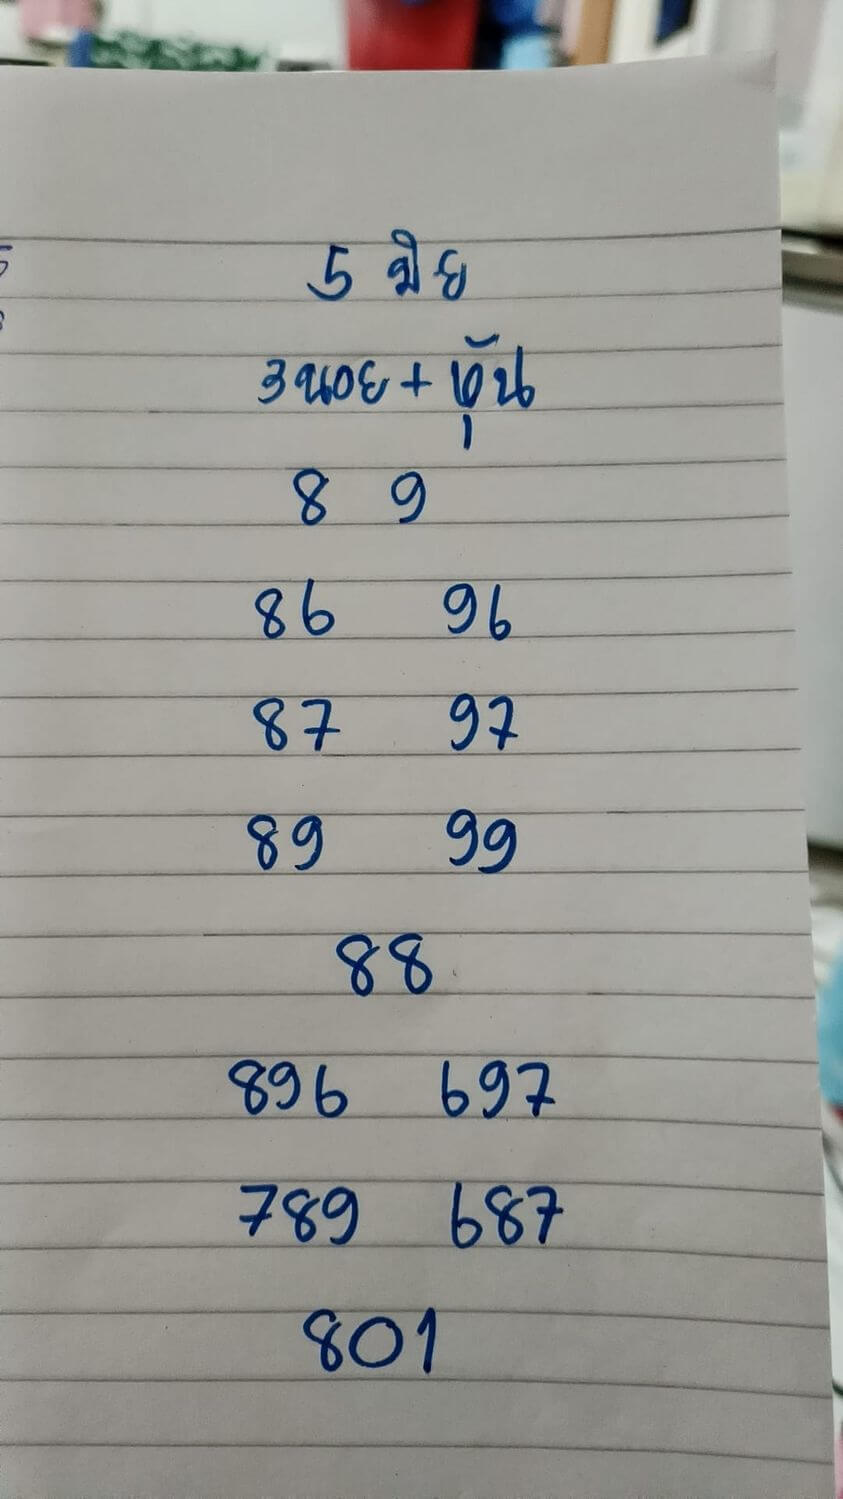 5 มิย
ฮานอย + หุ้น
8 9
86 96
87 97
89 99
88
896 697
789 687
801